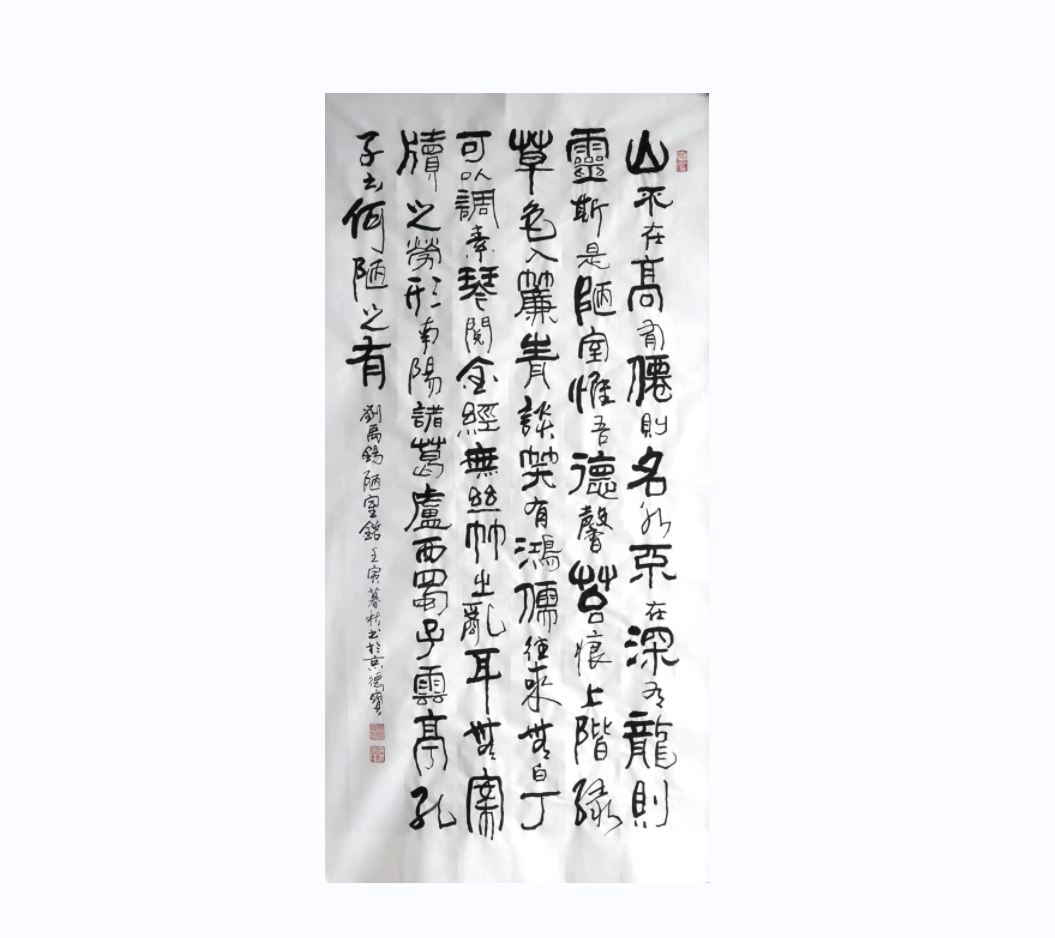 山不在高有僊則名水不在深有龍則
靈斯是陋室惟吾德馨苔痕上階緑
草色入簾青談笑有鴻儒往來無白丁
可以調素琴閱金經無絲竹之亂耳無案
牘之勞形南陽諸葛盧西蜀子雲亭孔
子云何陋之有
劉禹錫陋室銘壬寅暮秋书於京德寶